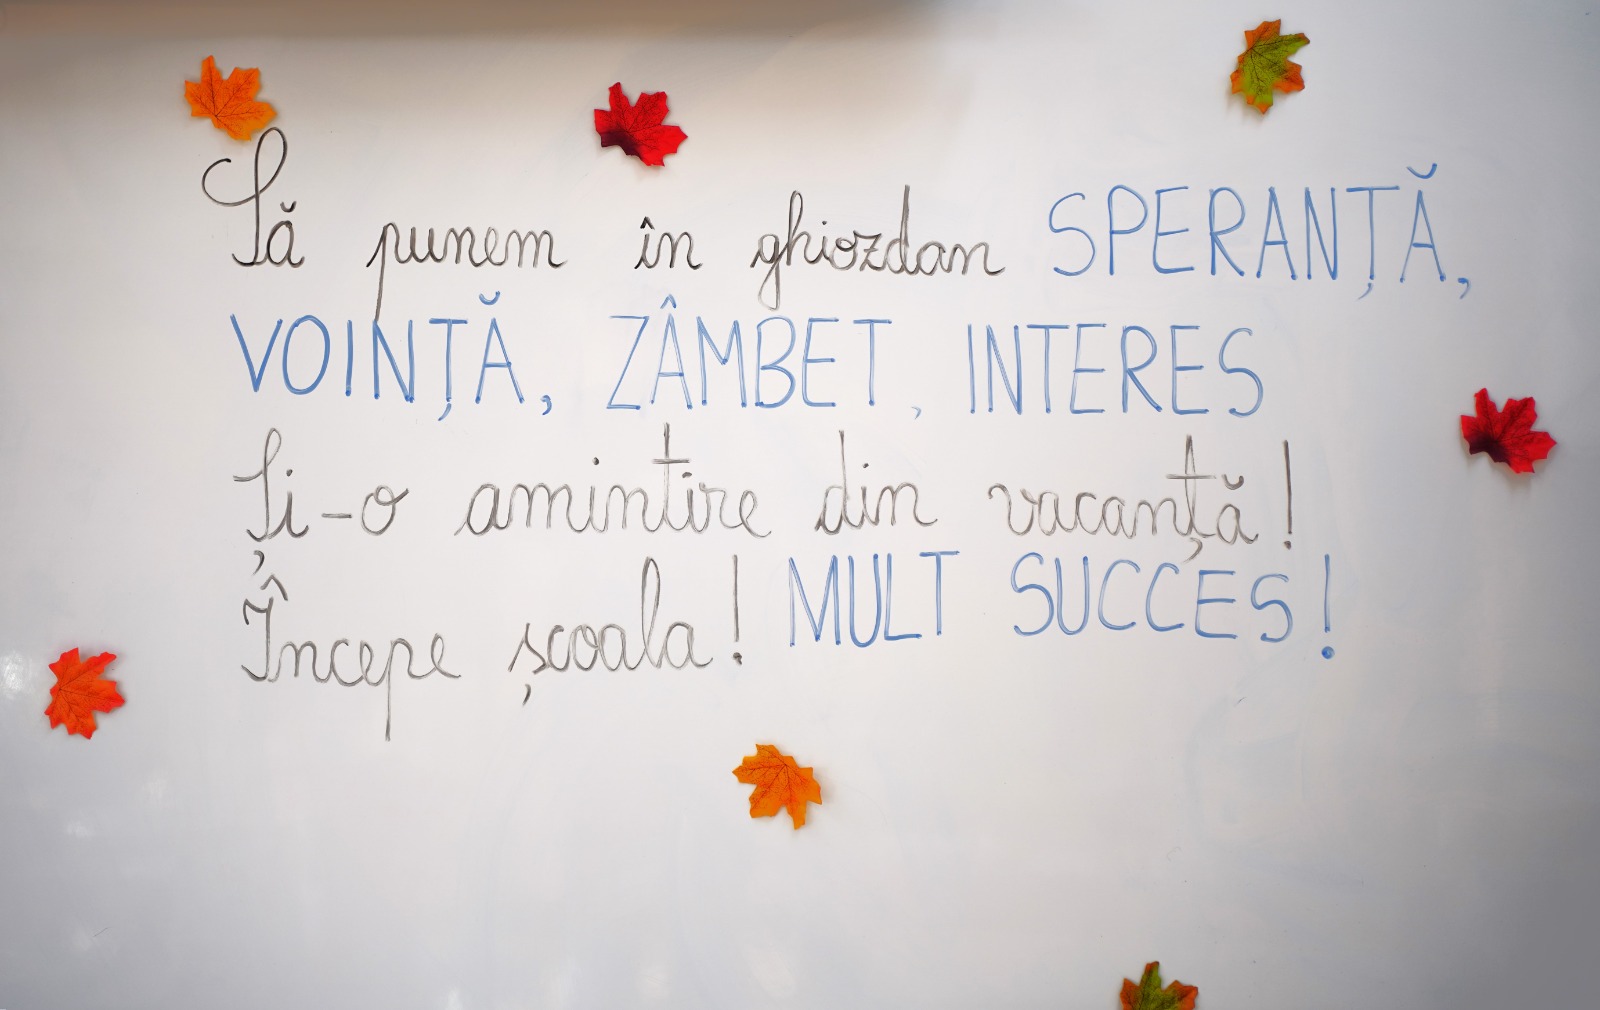 Să punem în ghiozdan SPERANȚĂ,
VOINȚĂ, ZÂMBET, INTERES
Și-o amintire din vacanță!
Începe școala! MULT SUCCES!